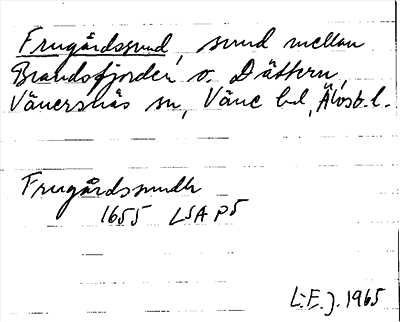 Frugårdssund, sund mellan
Brandsfjorden o. Dättern,
Vänersnäs sn, Väne hd, Älvsb. l.
Frugårdssundh
1655 LSA P5
L:E. J. 1965